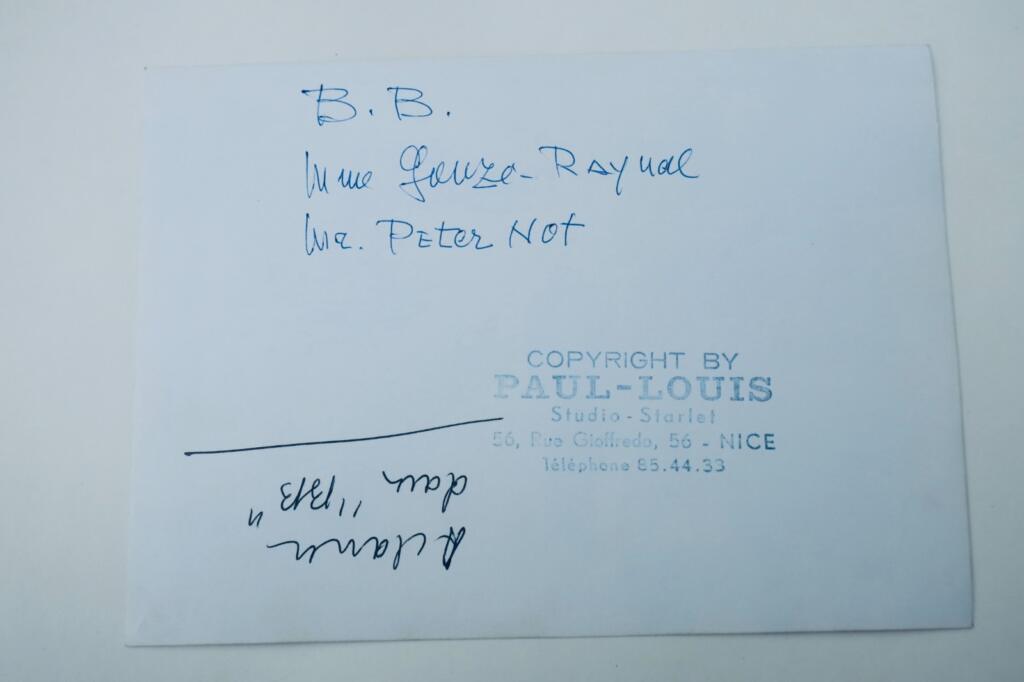 B. B.
Mme Gonzo-Raynal
Mr. Peter Not
COPYRIGHT BY
PAUL-LOUIS
Studio-Starlet
56, Rue Gioffredo, 56 - NICE
Téléphone 85.44.33
dans "BB"